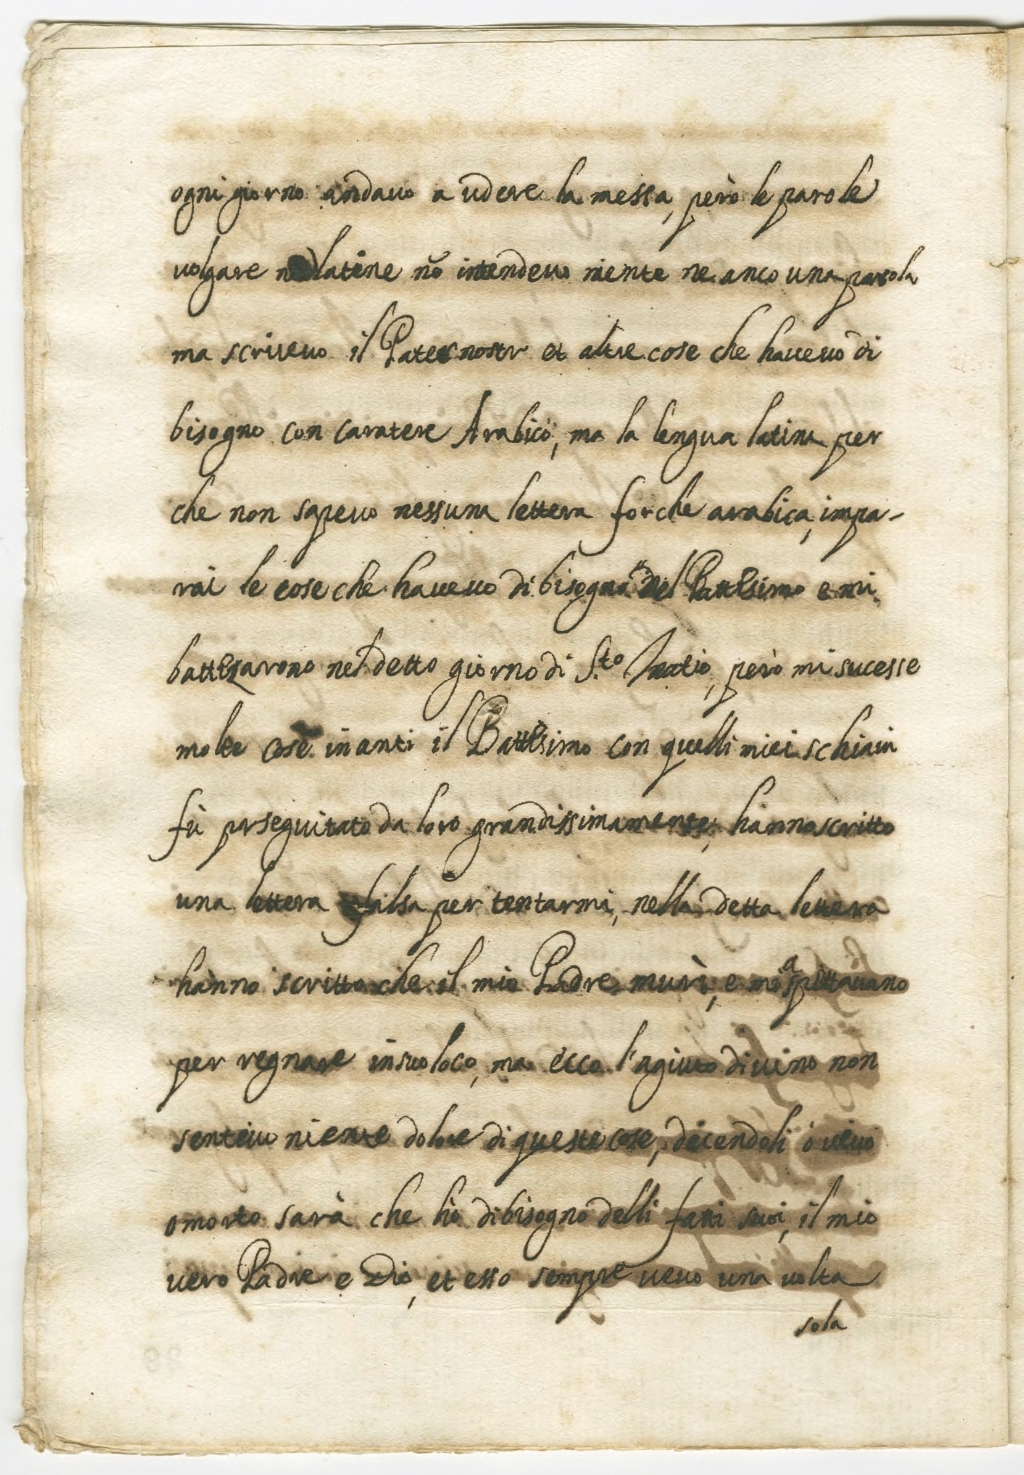 ogni giorno andavo a udere la messa, però le parole
volgare latine nõ intendevo niente ne anco una parola
ma scrivevo il Paternostr et altre cose che havevo di
bisogno con caratere Arabico, ma la lengua latina per
che non sapevo nessuna lettera forche arabica, impa-
rai le cose che havevo di bisogna del Battesimo e mi
battezarono nel detto giorno di S.to, però mi sucesse
molte cose inanti il Battesimo con quelli miei schiavi
fù perseguitato da loro grandissimamente, hànno scritto
una lettera falsa per tentarmi, nella detta lettera
hànno scritto che il mio Padre murì, e mi aspittavano
per regnare in suo loco, ma ecco l'agiuto divino non
sentivo niente dolore di queste cose, dicendoli ò vivo
o morto sarà che hò di bisogno delli fatti suoi, il mio
vero Padre e Dio, et esso sempre vevo una volta
sola